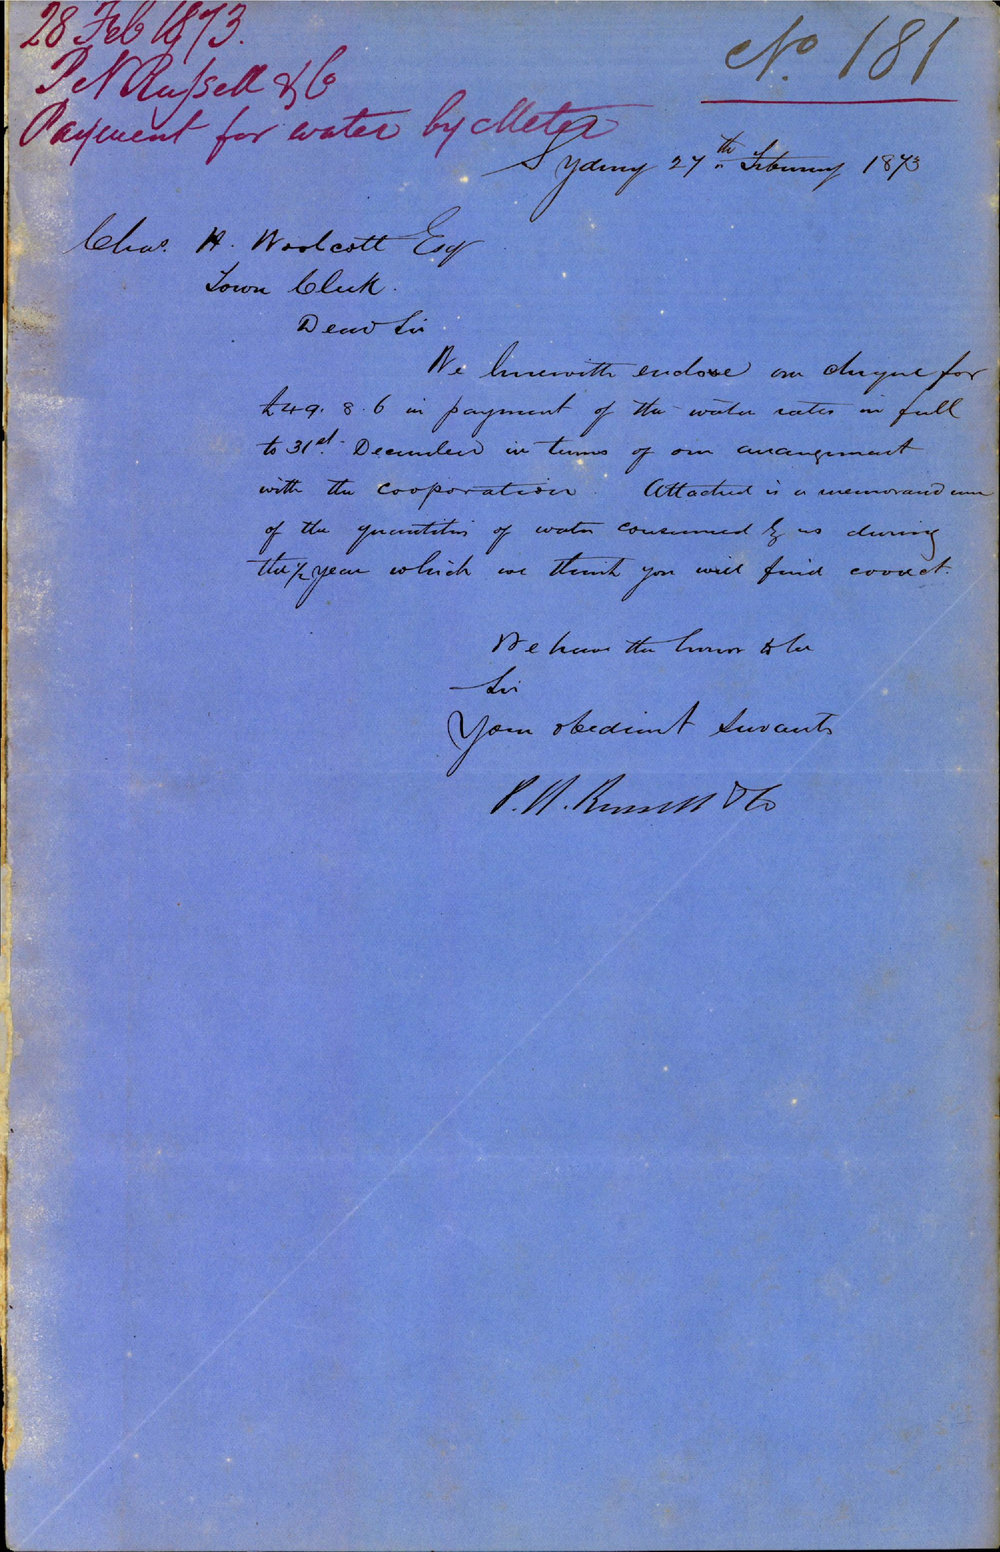 28 Feb 1873.
P N Russell & Co
Payment for water by Meter
No. 181
Sydney 27th February 1873
Chas. H. Woolcott Esq
Town Clerk.
Dear Sir
We herewith enclose our cheque for
£49. 8. 6 in payment of the water rates in full
to 31st December in terms of our arrangement
with the cooporation. Attached is a memorandum
of the quantities of water consumed by us during
the 1/2 year which we think you will find correct.
We have the honor to be
Sir
Your obedient Servants
P. N. Russell & Co